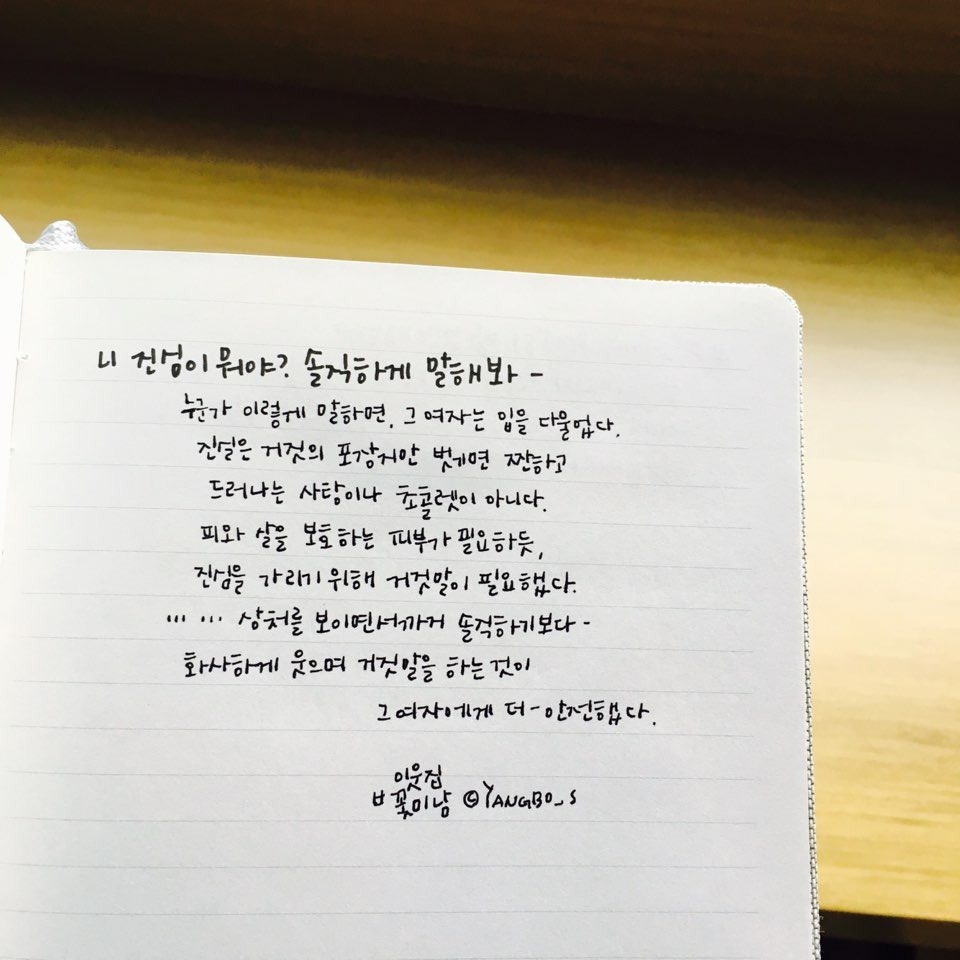 니 진심이 뭐야? 솔직하게 말해봐 -
누군가 이렇게 말하면, 그 여자는 입을 다물었다.
진실은 거짓의 포장지만 벗기면 짠하고
드러나는 사탕이나 초콜렛이 아니다.
피와 살을 보호하는 피부가 필요하듯,
진심을 가리기 위해 거짓말이 필요했다.
... ... 상처를 보이면서까지 솔직하기보다 -
화사하게 웃으며 거짓말을 하는 것이
그 여자에게 더 - 안전했다.
이웃집
꽃미남 ©YANGBO_S